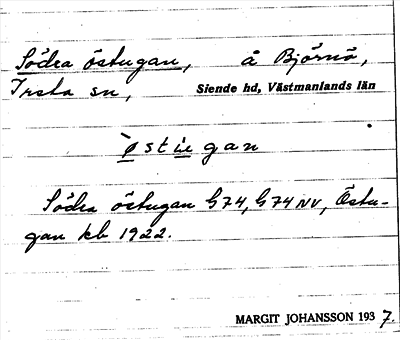 Södra östugan, å Björnö,
Irsta sn, Siende hd, Västmanlands län
ø̀stugan
Södra östugan G74, G74NV, Östu-
gan kb 1922.
MARGIT JOHANSSON 1937.